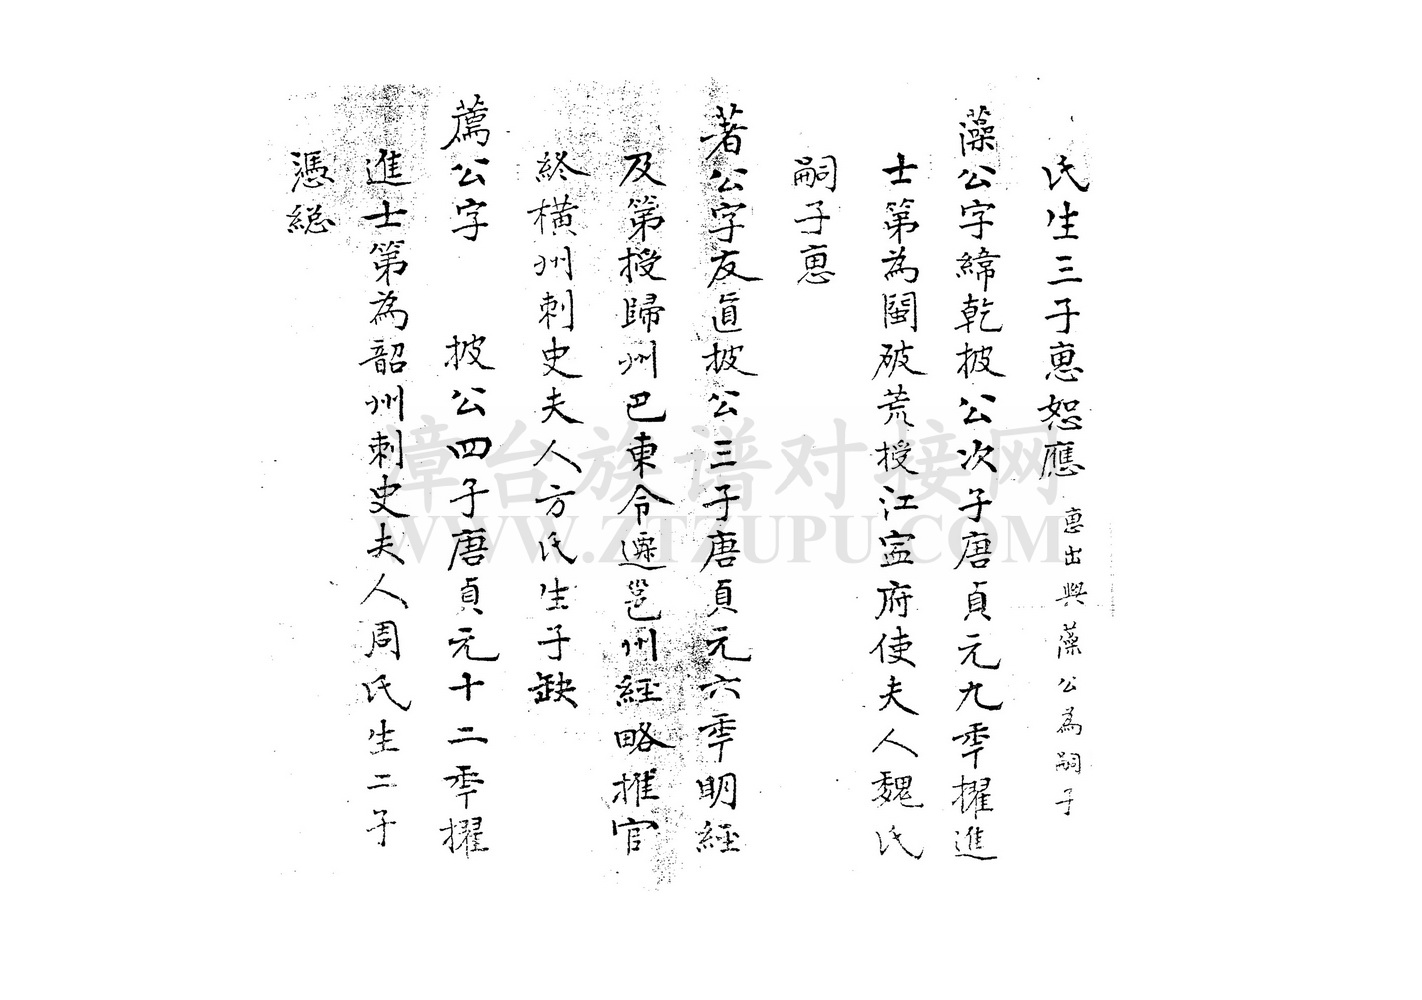 氏生三子恵恕應 恵出與藻公為嗣子
藻公字締乾披公次子唐貞元九秊擢進
士第為閩破荒授江寍府使夫人魏氏
嗣子恵
著公字友直披公三子唐貞元六秊明經
及第授歸州巴東令遷邕州經略推官
終橫州刺史夫人方氏生子缺
薦公字 披公四子唐貞元十二秊擢
進士第為韶州刺史夫人周氏生二子
憑總
漳台族谱对接网
WWW.ZTZUPU.COM